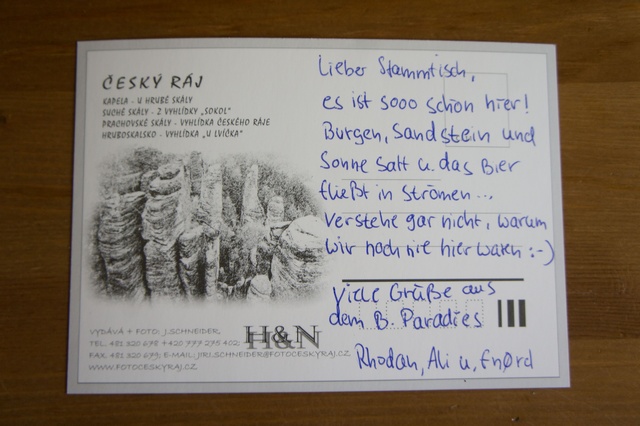 ČESKÝ RÁJ
KAPELA - U HRUBÉ SKÁLY
SUCHÉ SKÁLY - Z VYHLÍDKY „SOKOL"
PRACHOVSKÉ SKÁLY - VYHLÍDKA ČESKÉHO RÁJE
HRUBOSKALSKO - VYHLÍDKA „U LVÍČKA"
VYDÁVÁ + FOTO: J.SCHNEIDER,
TEL. 481 320 678 +420 777 275 402;
FAX. 481 320 679; E-MAIL: JIRI.SCHNEIDER@FOTOCESKYRAJ.CZ
WWW.FOTOCESKYRAJ.CZ
H&N
Lieber Stammtisch,
es ist sooo schön hier!
Burgen, Sandstein und
Sonne satt u. das Bier
fließt in Strömen...
Verstehe gar nicht, warum
wir noch nie hier waren :-)
Viele Grüße aus
dem B. Paradies
Rhodan, Ali u. fnørd